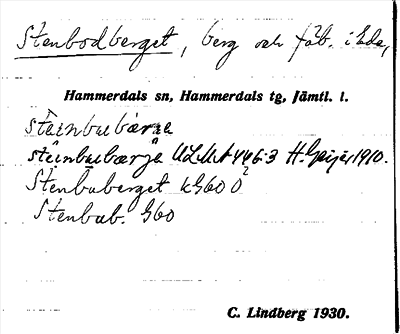 Stenbodberget, berg och fäb. i Ede,
Hammerdals sn, Hammerdals tg, Jämtl. l.
stæinbubærje
stæinbubærja ULMA 446:3 H. Geijer 1910.
Stenbuberget kG60 Ö2
Stenbub. G60
C. Lindberg 1930.